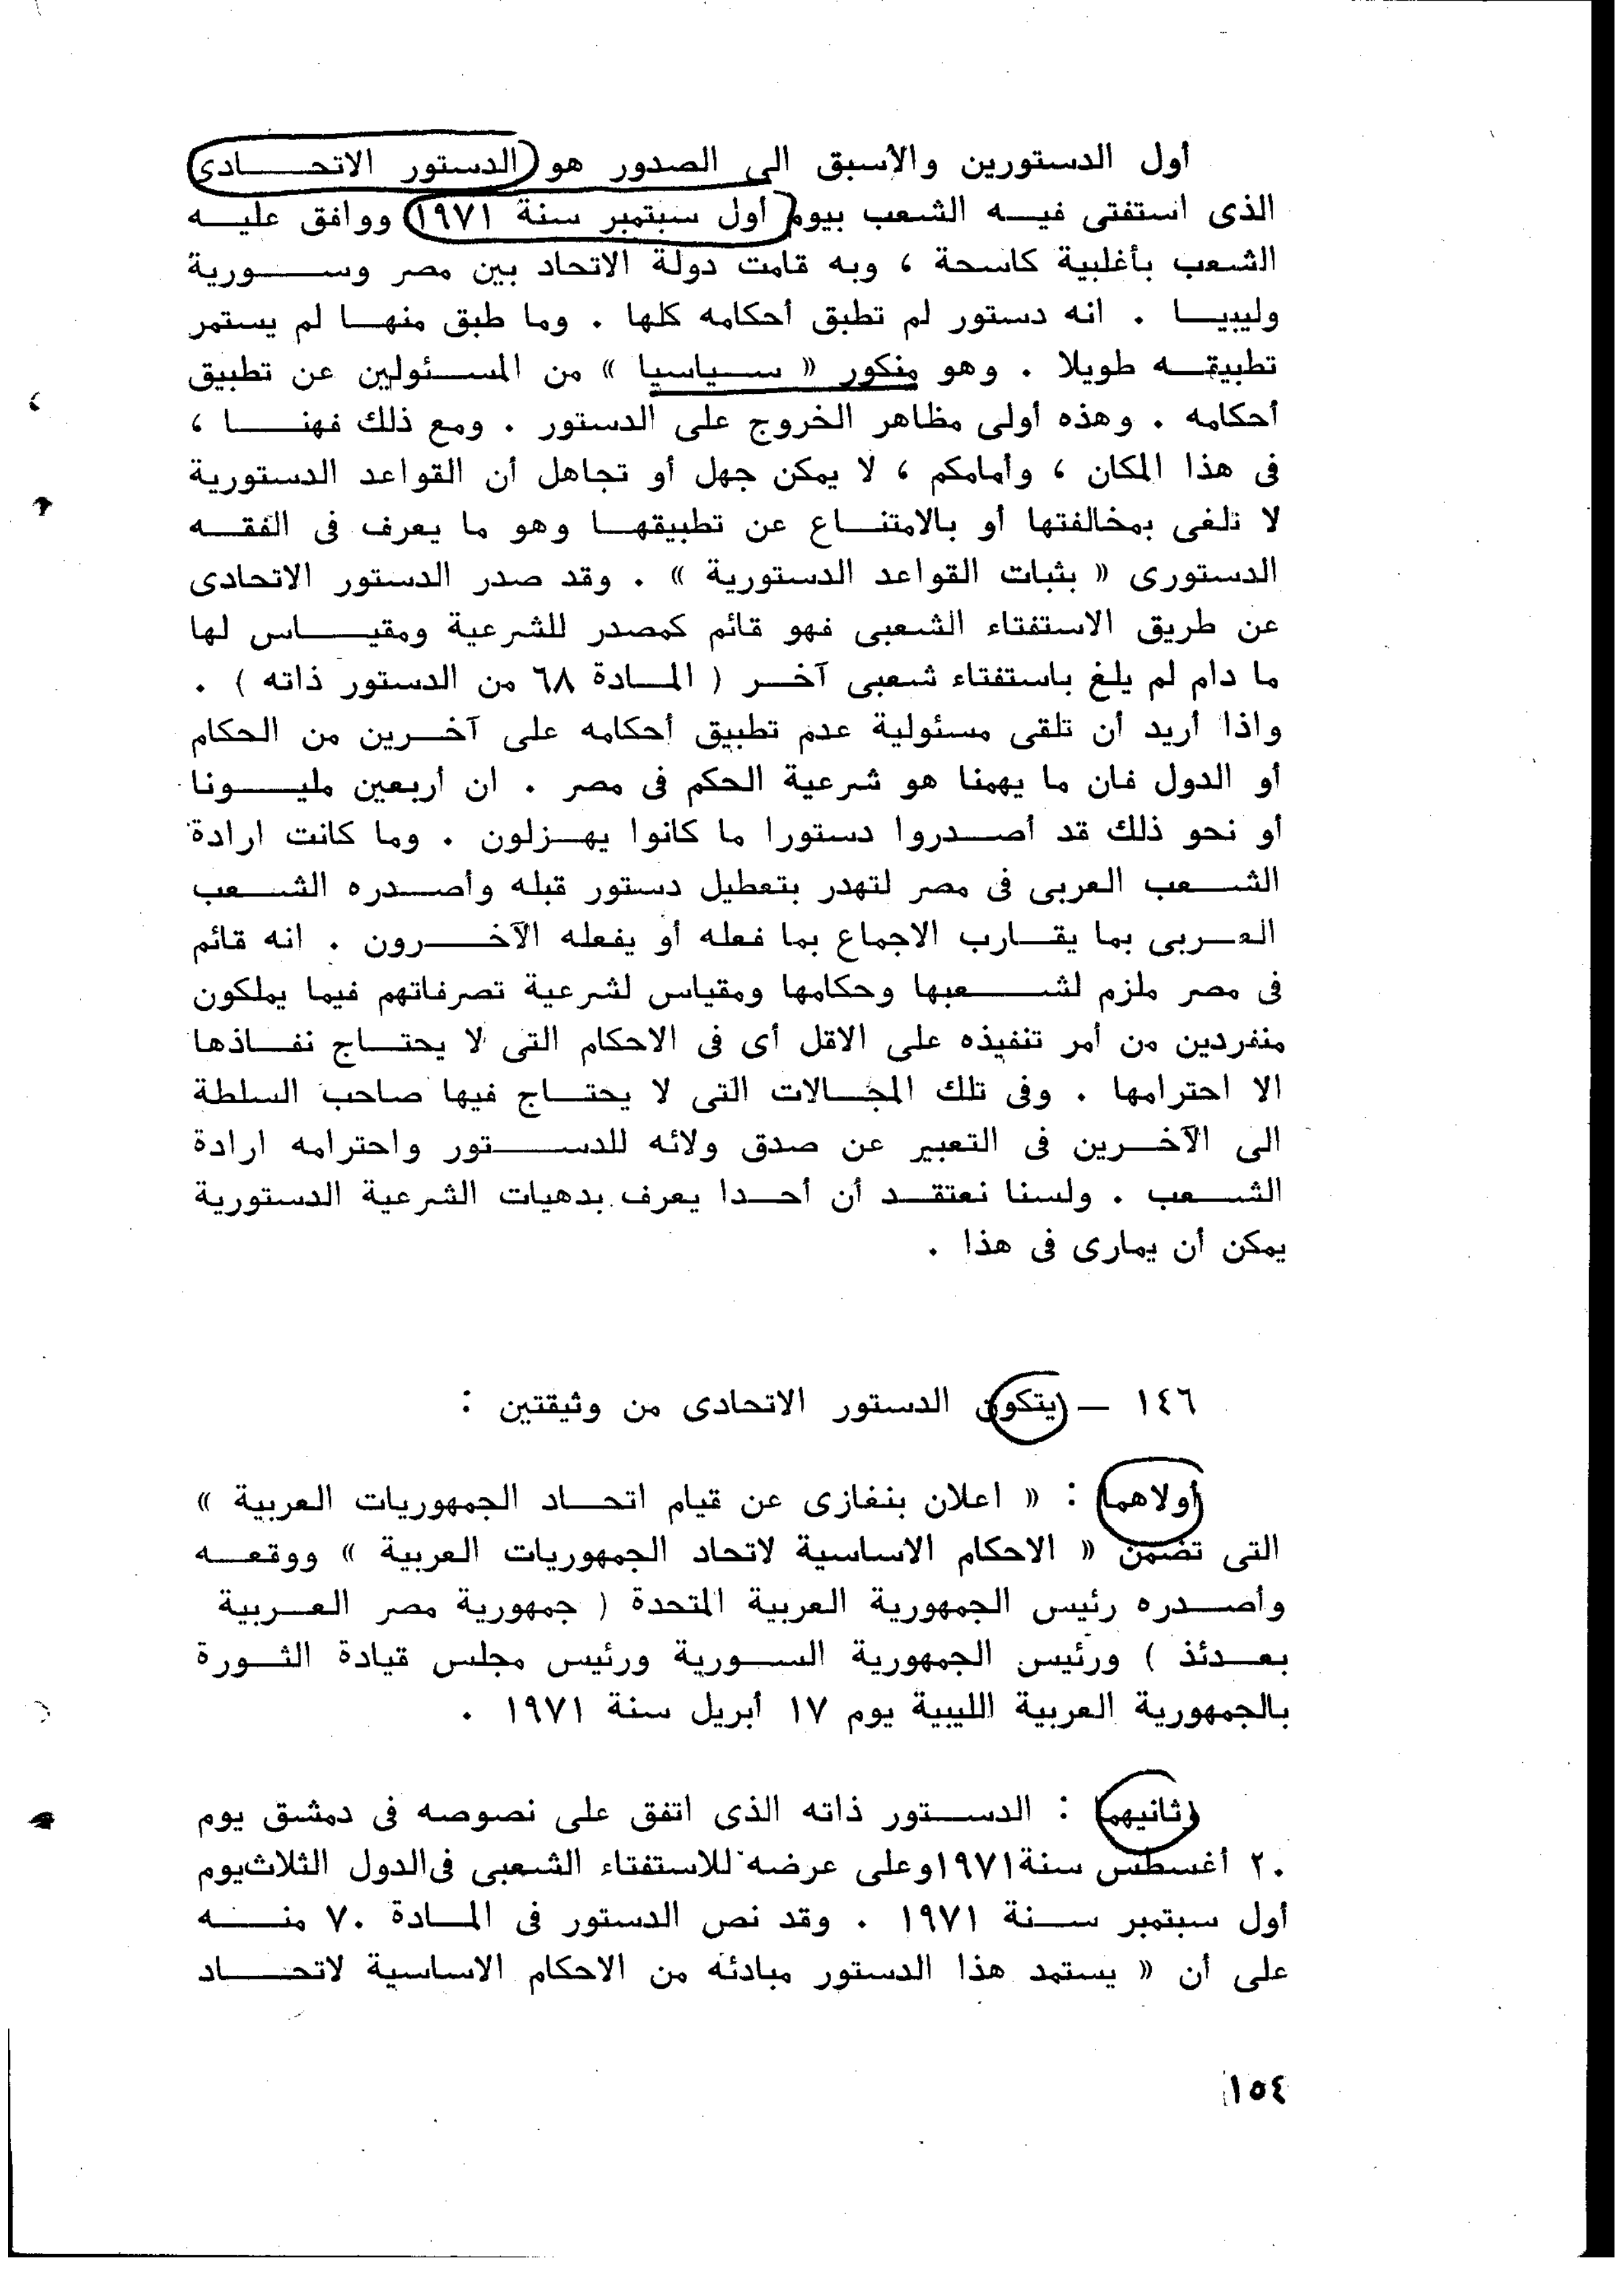 أول الدستورين والأسبق الى الصدور هو الدستور الاتحادى
الذى استفتى فيه الشعب بيوم أول سبتمبر سنة ١٩٧١ ووافق عليه
الشعب بأغلبية كاسحة ، وبه قامت دولة الاتحاد بين مصر وسورية
وليبيا . انه دستور لم تطبق أحكامه كلها . وما طبق منها لم يستمر
تطبيقه طويلا . وهو منكور « سياسيا » من المسئولين عن تطبيق
أحكامه . وهذه أولى مظاهر الخروج على الدستور . ومع ذلك فهنا ،
فى هذا المكان ، وأمامكم ، لا يمكن جهل أو تجاهل أن القواعد الدستورية
لا تلغى بمخالفتها أو بالامتناع عن تطبيقها وهو ما يعرف فى الفقه
الدستورى « بثبات القواعد الدستورية » . وقد صدر الدستور الاتحادى
عن طريق الاستفتاء الشعبى فهو قائم كمصدر للشرعية ومقياس لها
ما دام لم يلغ باستفتاء شعبى آخر ( المادة ٦٨ من الدستور ذاته ) .
واذا أريد أن تلقى مسئولية عدم تطبيق أحكامه على آخرين من الحكام
أو الدول فان ما يهمنا هو شرعية الحكم فى مصر . ان أربعين مليونا
أو نحو ذلك قد أصدروا دستورا ما كانوا يهزلون . وما كانت ارادة
الشعب العربى فى مصر لتهدر بتعطيل دستور قبله وأصدره الشعب
العربى بما يقارب الاجماع بما فعله أو يفعله الآخرون . انه قائم
فى مصر ملزم لشعبها وحكامها ومقياس لشرعية تصرفاتهم فيما يملكون
منفردين من أمر تنفيذه على الاقل أى فى الاحكام التى لا يحتاج نفاذها
الا احترامها . وفى تلك المجالات التى لا يحتاج فيها صاحب السلطة
الى الآخرين فى التعبير عن صدق ولائه للدستور واحترامه ارادة
الشعب . ولسنا نعتقد أن أحدا يعرف بدهيات الشرعية الدستورية
يمكن أن يمارى فى هذا .
١٤٦ — يتكون الدستور الاتحادى من وثيقتين :
أولاهما : « اعلان بنغازى عن قيام اتحاد الجمهوريات العربية »
التى تضمن « الاحكام الاساسية لاتحاد الجمهوريات العربية » ووقعه
وأصدره رئيس الجمهورية العربية المتحدة ( جمهورية مصر العربية
بعدئذ ) ورئيس الجمهورية السورية ورئيس مجلس قيادة الثورة
بالجمهورية العربية الليبية يوم ١٧ أبريل سنة ١٩٧١ .
وثانيهما : الدستور ذاته الذى اتفق على نصوصه فى دمشق يوم
٢٠ أغسطس سنة ١٩٧١ وعلى عرضه للاستفتاء الشعبى فى الدول الثلاث يوم
أول سبتمبر سنة ١٩٧١ . وقد نص الدستور فى المادة ٧٠ منه
على أن « يستمد هذا الدستور مبادئه من الاحكام الاساسية لاتحاد
١٥٤